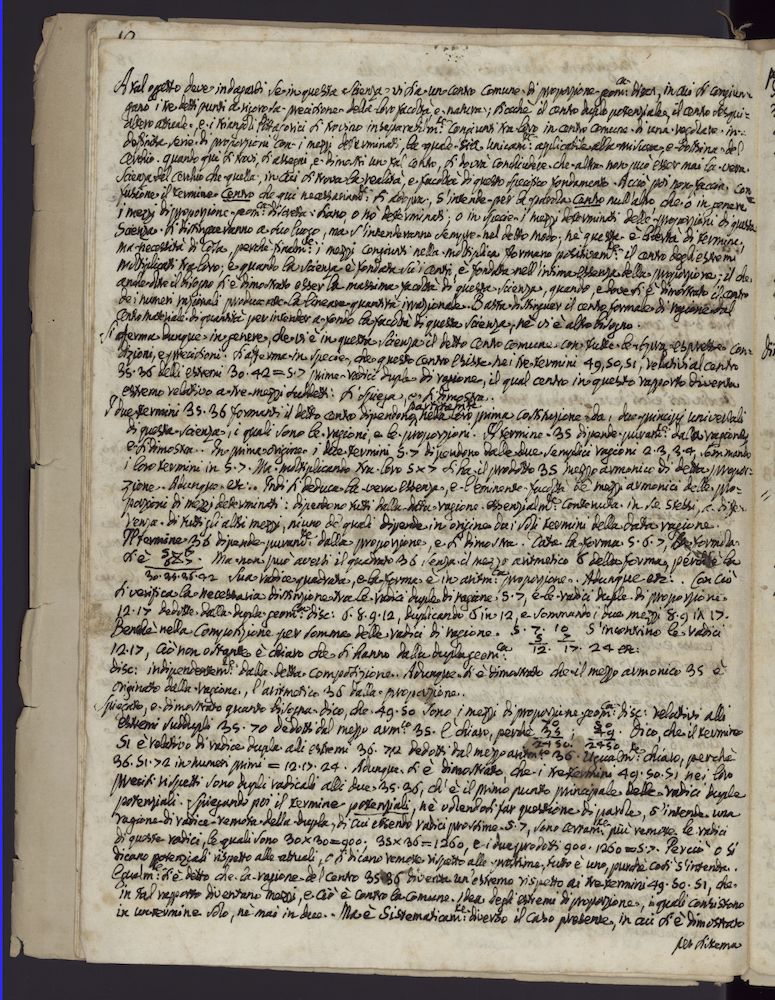 A tal oggetto deve indagarsi se in questa scienza vi sia un centro comune di proporzione geom:ca disc:, in cui si congiun=
gano i tre detti punti a ricerca precisione della loro facoltà, e natura; sicchè il centro duplo potenziale, il centro sesqui=
altero attuale, e i triangoli Pittagorici si trovino inseparabilm:te congiunti tra loro in centro comune di una regolata in=
definita serie di proporzioni con i mezzi determinati, la quale sia unicam:te applicabile alla musica, e dottrina del
Cerchio. quando qui si trovi, si assegni, e dimostri un tal centro, si dovrà conchiudere che altra non può esser mai la vera
Scienza del cerchio che quella, in cui si trova la realità, e facoltà di questo fisico fondamento. Acciò poi non faccia con=
fusione il termine Centro che qui necessariam:te si adopra, s'intende per la parola Centro null'altro che o in genere
i mezzi di proporzione geom:ca discreta siano, o nò determinati; o in specie i mezzi determinati delle proporzioni di questa
Scienza. Si distingueranno a suo luogo, ma s'intenderanno sempre nel detto modo; nè questa è libertà di termine,
ma necessità di cosa, perchè finalm:te i mezzi congiunti nella moltiplica formano positivam:te il centro degli estremi
moltiplicati tra loro; e quando la Scienza è fondata su i centri, è fondata nell'intima essenza della proporzione; il che
quando sia il bisogno si è dimostrato esser la massima facoltà di questa scienza, quando, e dove si è dimostrato il centro
de i numeri razionali produce alle la lineare quantità irrazionale. Basta distinguer il centro formale di ragione dal
centro materiale di quantità per intender a fondo la facoltà di questa Scienza, nè vi è altro bisogno.
Si afferma dunque in genere, che vi è in questa scienza il detto centro comune con tutte le sopra espresse con=
dizioni, e precisioni. Si afferma in specie, che questo centro esiste nei tre termini 49, 50, 51, relativi al centro
35. 36 delli estremi 30. 42 = 5. 7 prime radici duple di ragione, il qual centro in questo rapporto diventa
estremo relativo a tre mezzi suddetti: si spiega, e si dimostra.
I due termini 35. 36 formanti il detto centro dipendono partitam:te nella loro prima costituzione da i due principj universali
di questa scienza, i quali sono le ragioni, e le proporzioni. Il termine 35 dipende puram:te dalla ragione,
e si dimostra. In prima origine i due termini 5. 7 dipendono dalle due semplici ragioni 2. 3, 3. 4, sommando
i loro termini in 5. 7. Ma moltiplicando tra loro 5 x 7 si ha il prodotto 35 mezzo armonico di detta propor=
zione. Adunque etc. Indi si deduca la vera essenza, e l'eminente facoltà de mezzi armonici delle pro=
porzioni di mezzi determinati: dipendono tutti dalla data ragione essenzialm:te contenuta in se stessi, a diffe=
renza di tutti gli altri mezzi, niuno de quali dipende in origine da i soli termini della data ragione.
Il termine 36 dipende puram:te dalla proporzione, e si dimostra. Data la forma 5. 6. 7, la formola
si è 5 6 / 6 7 Ma non può aversi il quadrato 36, senza il mezzo aritmetico 6 della forma, perchè è la
30. 35. 36. 42 sua radice quadrata, e la forma è in aritm:ca proporzione. Adunque etc. Con ciò
si verifica la necessaria distinzione tra le radici duple di ragione 5. 7, e le radici duple di proporzione
12. 17 dedotte dalla dupla geom:ca disc: 6. 8. 9. 12, duplicando 6 in 12, e sommando i due mezzi 8. 9 in 17.
Benchè nella composizione per somma delle radici di ragione 5. 7. 10 s'incontrino le radici
12. 17, ciò non ostante è chiaro che si hanno dalla dupla geom:ca 12. 17. 24 etc.
disc: indipendentem:te dalla detta composizione. Adunque si è dimostrato che il mezzo armonico 35 è
originato dalla ragione, l'aritmetico 36 dalla proporzione.
Spiegato, e dimostrato quanto bisogna dico, che 49. 50 sono i mezzi di proporzione geom:ca disc: relativi alli
estremi suddupli 35. 70 dedotti dal mezzo arm:co 35. È chiaro, perchè 70 35 / 2450; 50 49 / 2450. Dico, che il termine
51 è relativo di radice dupla alli estremi 36. 72 dedotti dal mezzo aritm:co 36. Ugualm:te chiaro, perchè
36. 51. 72 in numeri primi = 12. 17. 24. Adunque si è dimostrato, che i tre termini 49. 50. 51 nei loro
precisi rispetti sono dupli radicali alli due 35. 36, ch'è il primo punto principale delle radici duple
potenziali. Spiegando poi il termine potenziali, nè volendosi far questione di parole, s'intende una
ragione di radice remota della dupla, di cui essendo radici prossime 5. 7, sono certam:te più remote le radici
di queste radici, le quali sono 30x30=900; 35x36=1260, e i due prodotti 900. 1260 = 5. 7. Perciò o si
dicano potenziali rispetto alle attuali, o si dicano remote rispetto alle prossime, tutto è uno, purchè così s'intenda.
Egualm:te si è detto che la ragione del centro 35. 36 diventa un'estremo rispetto ai tre termini 49. 50. 51, che
in tal rapporto diventano mezzi, e ciò è contro la comune idea degli estremi di proporzione, i quali consistono
in un termine solo, nè mai in due. Ma è Sistematicam:te diverso il caso presente, in cui si è dimostrato